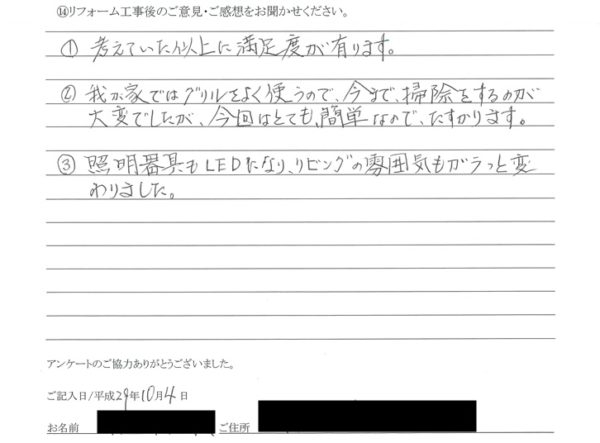 ⑭リフォーム工事後のご意見・ご感想をお聞かせください。
① 考えていた以上に満足度が有ります。
② 我が家ではグリルをよく使うので、今まで、掃除をするのが
大変でしたが、今回はとても簡単なので、たすかります。
③ 照明器具もLEDになり、リビングの雰囲気もガラっと変
わりました。
アンケートのご協力ありがとうございました。
ご記入日/平成29年10月4日
お名前 ご住所